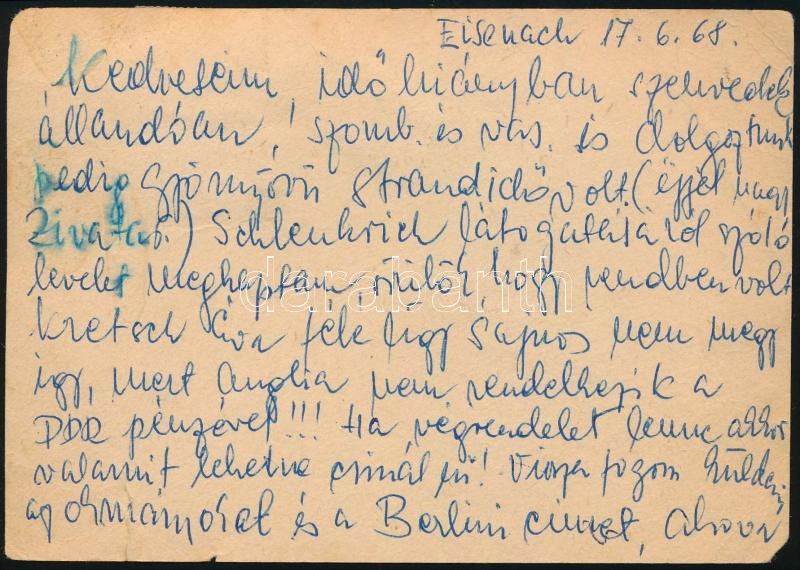 Eisenach 17. 6. 68.
Kedveseim, időhiányban szenvedek
állandóan, szomb. és vas. is dolgoztunk
pedig gyönyörű strandidő volt (éjjel nagy
Zivatar.) Schlenkrich látogatásáról szóló
levelet megkaptam, örülök, hogy rendben volt
Kretsch Éva féle ügy sajnos nem megy
így, mert Anglia nem rendelkezik a
DDR pénzével!!! Ha végrendelet lenne akkor
valamit lehetne csinálni! Vissza fogom küldeni
az okmányokat és a Berlini címet, ahova
darabanth